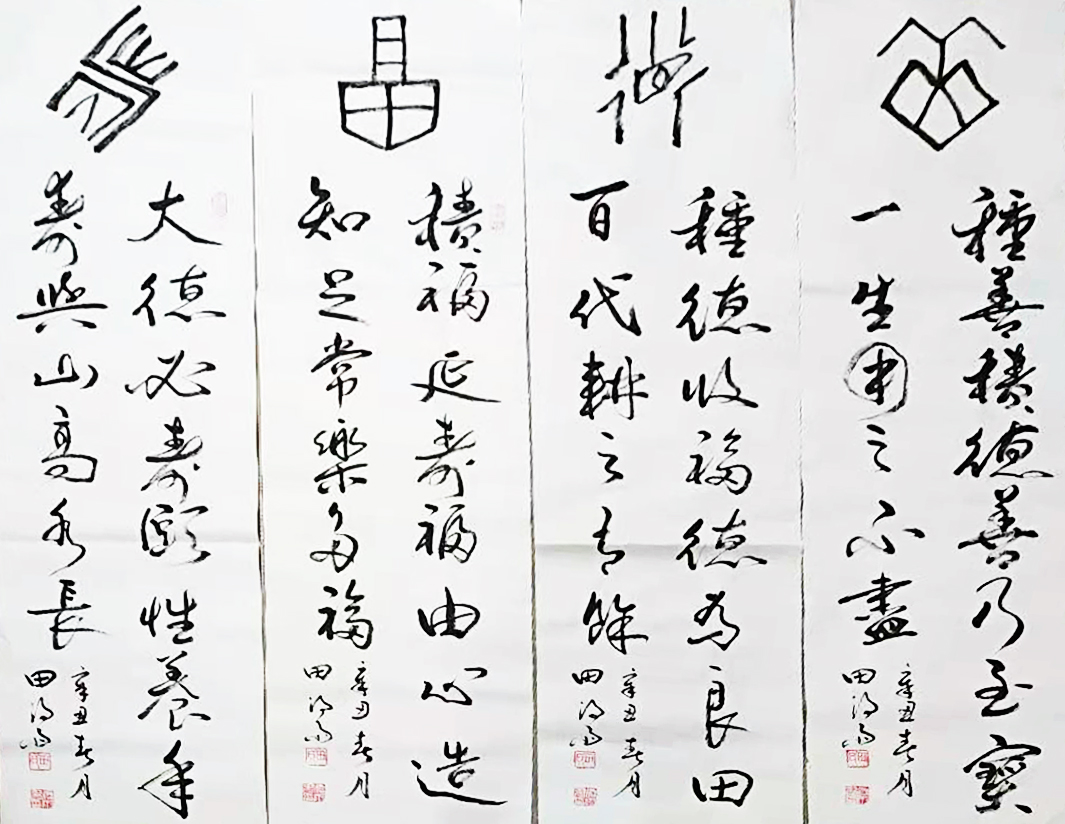 種善積德善乃至寶
一生用之不盡
辛丑春月
田
種德收福德為良田
百代耕之有餘
辛丑春月
田
積福延壽福由心造
知足常樂多福
辛丑春月
田
大德必壽頤性養年
壽與山高水長
辛丑春月
田